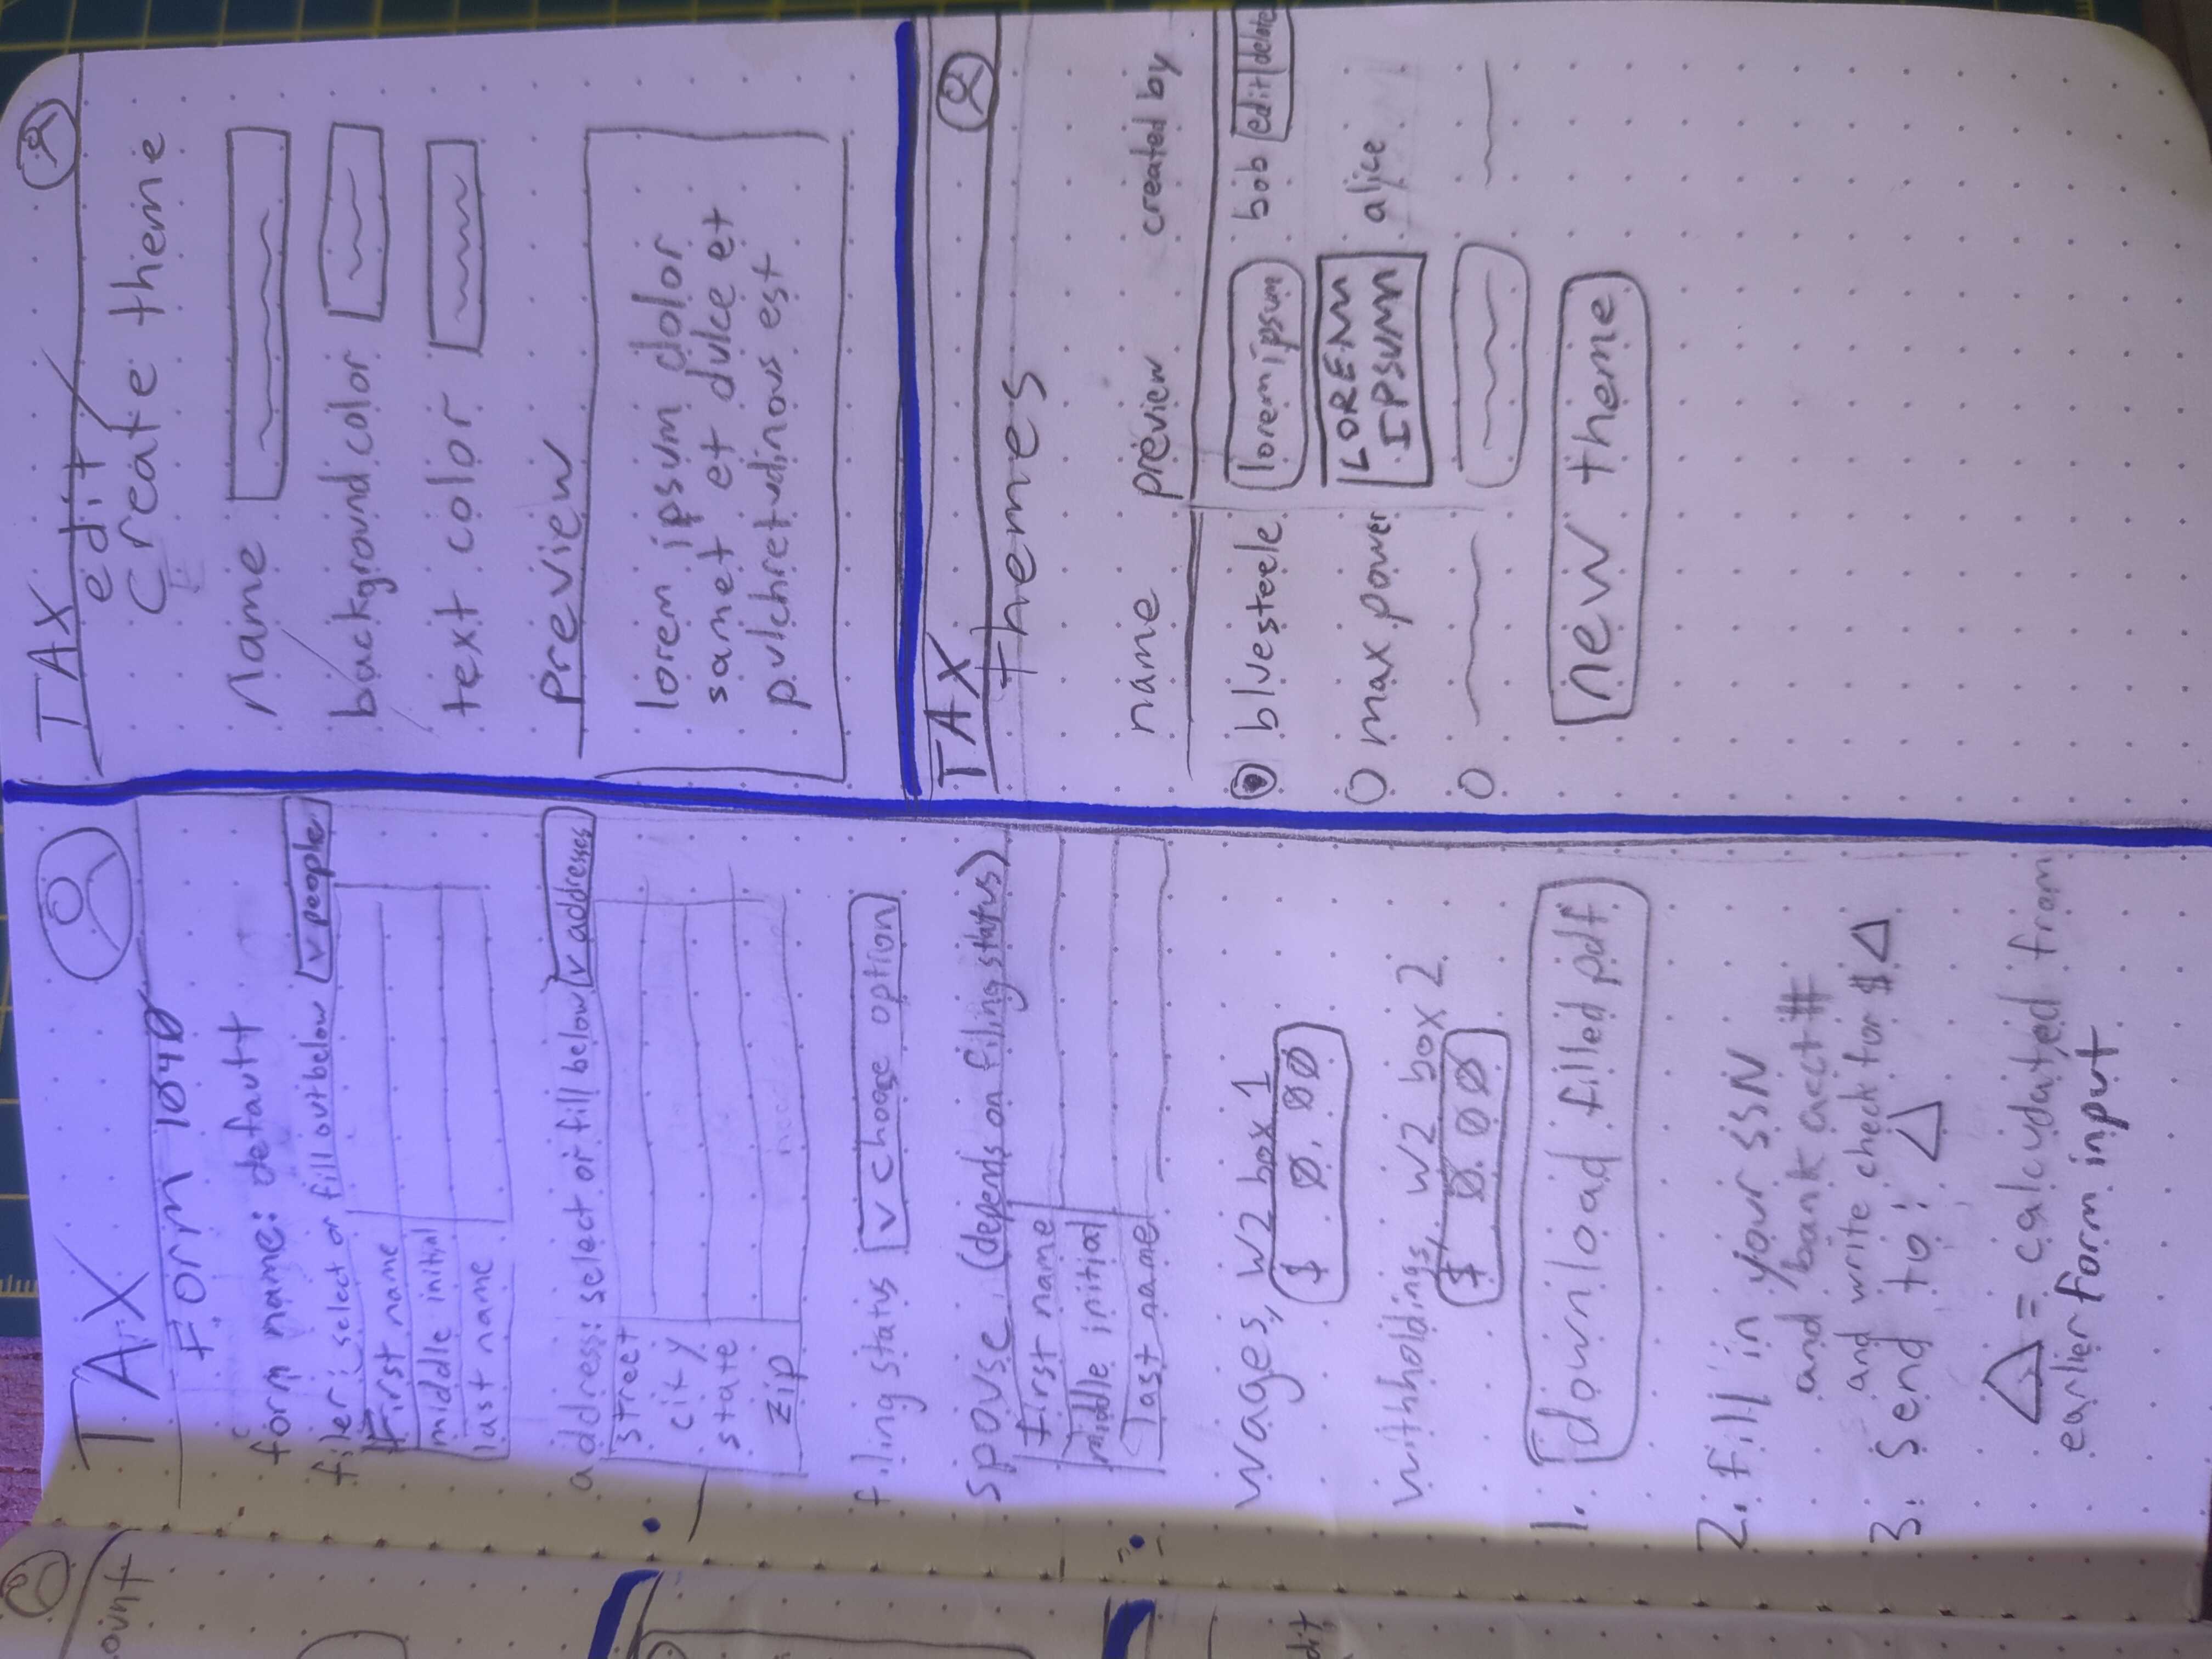 ount
dit
TAX
Form 1040
form name: default
filer: select or fill out below v people
First name
middle initial
last name
address: select or fill below v addresses
street
city
state
zip
filing status v choose option
spouse (depends on filing status)
first name
middle initial
last name
wages, W2 box 1
$ 0.00
withholdings, W2 box 2
$ 0.00
1. download filled pdf
2. fill in your SSN
and bank acct #
and write check for $ Δ
3. Send to: Δ
Δ = calculated from
earlier form input
TAX
edit /
create theme
name
background color
text color
preview
lorem ipsum dolor
samet et dulce et
pulchretudinous est
TAX
themes
name preview created by
bluesteele lorem ipsum bob edit delete
max power LOREM IPSUM alice
new theme